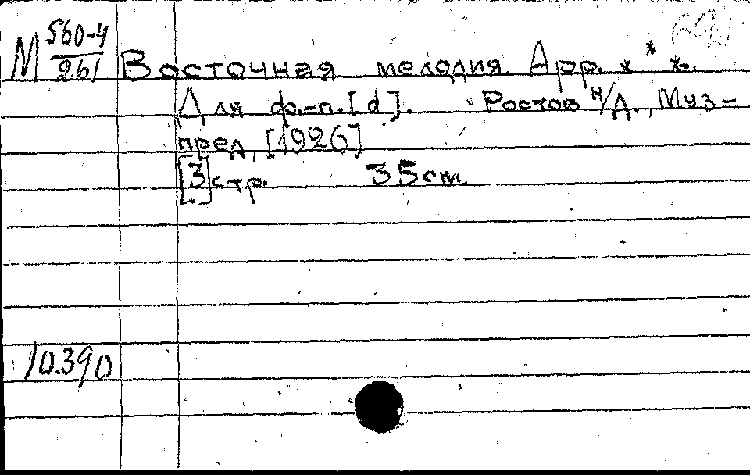 М 560-4/261
Восточная мелодия. Арр. * * *.
Для ф.-п. [d]. Ростов н/Д., Муз-
пред, [1926]
[3] стр. 35 см.
10.390